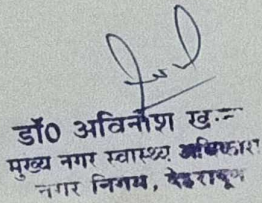 डॉ0 अविनाश
मुख्य नगर स्वास्थ्य अधिकारी
नगर निगम, देहरादून